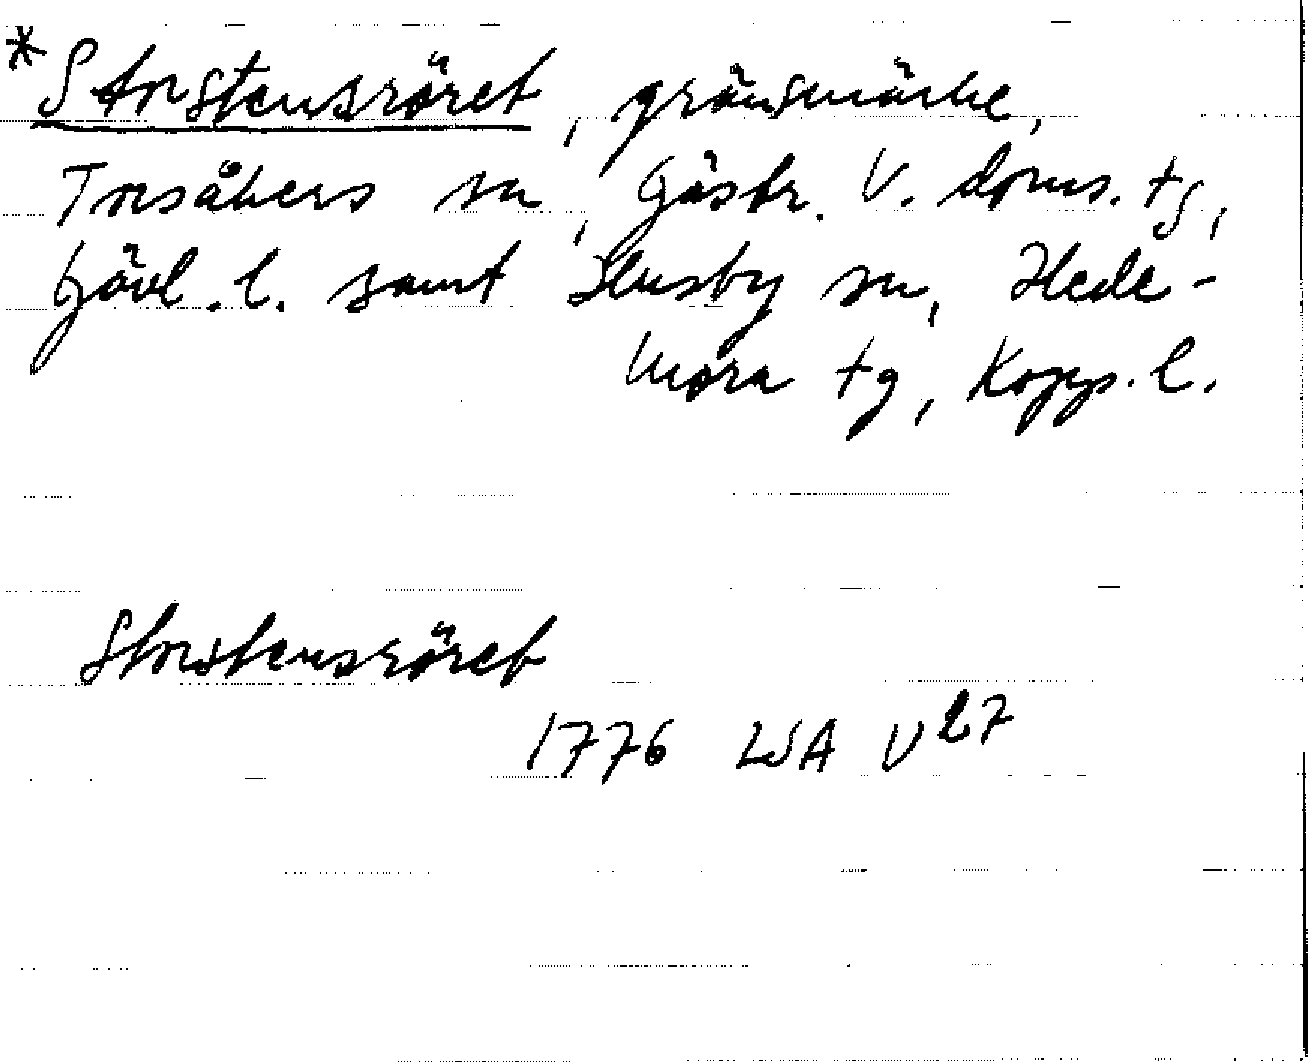 * Storstensröret, gränsmärke,
Torsåkers sn, Gästr. V. doms. tg,
Gävl. l. samt Husby sn, Hede-
mora tg, Kopp. l.
Storstensröret
1776 LSA V27